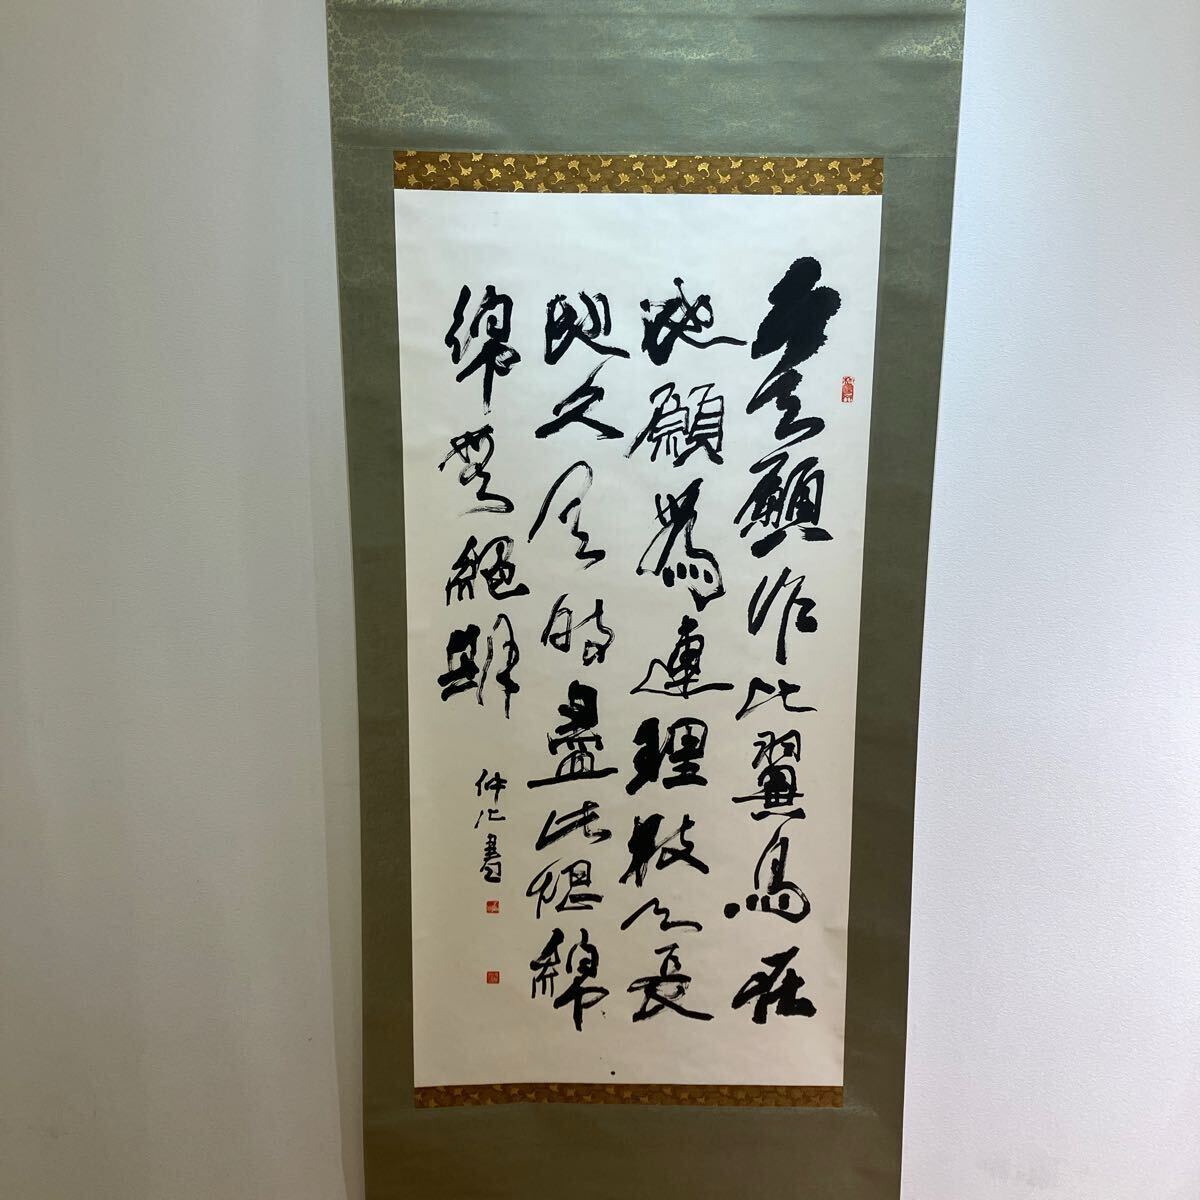 在天願作比翼鳥在
地願為連理枝天長
地久有時盡此恨綿
綿無絕期
仲 書